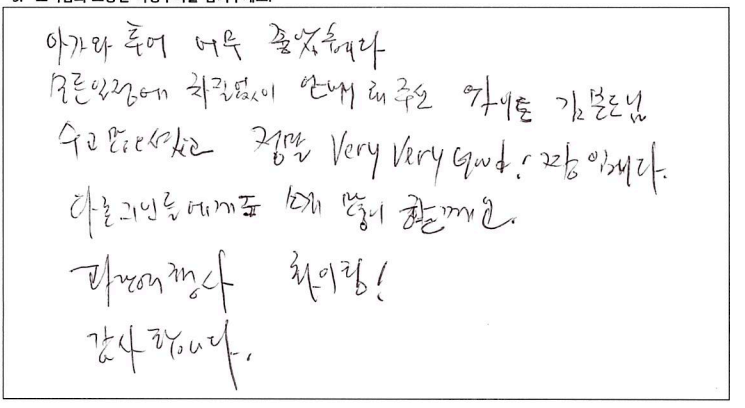 아가와 투어 너무 좋았습니다
모든일정에 차질없이 안내해 주신 가이드
수고 많으셨고 정말 Very Very Good! 짱 입니다.
다른 지인들에게도 소개 많이 할께요.
화이팅!
감사합니다.